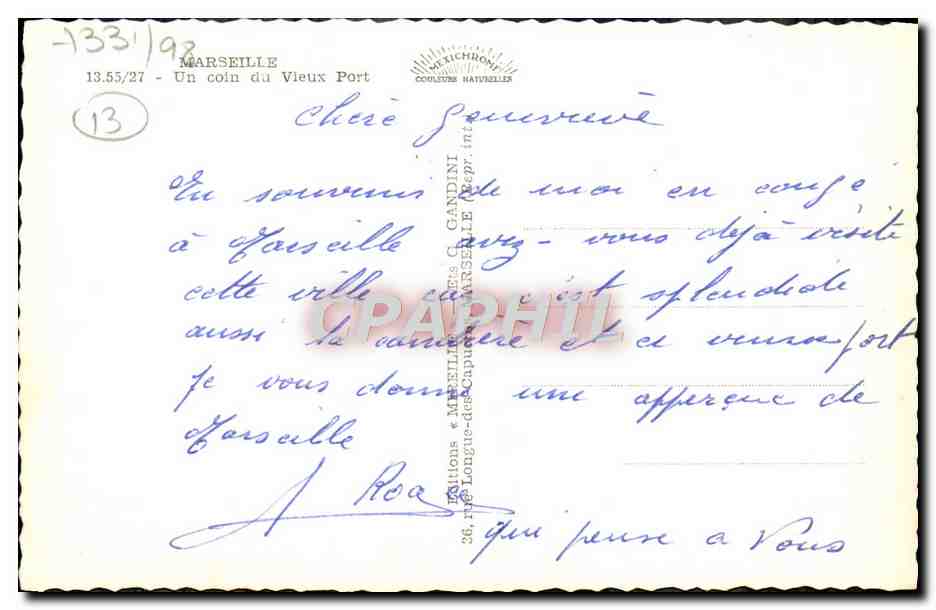 -1331/98
MARSEILLE
13.55/27 - Un coin du Vieux Port
MEXICHROME
COULEURS NATURELLES
13
Chère Geneviève
En souvenir de moi en congé
à Marseille avez-vous déjà visité
cette ville car c'est splendide
aussi la et ce vieux port
je vous donne une apperçue de
Marseille
qui pense a Vous
Editions « MEREILLE » Ets G. GANDINI
36, rue Longue-des-Capucins MARSEILLE (Repr. int.
CPAPHIL